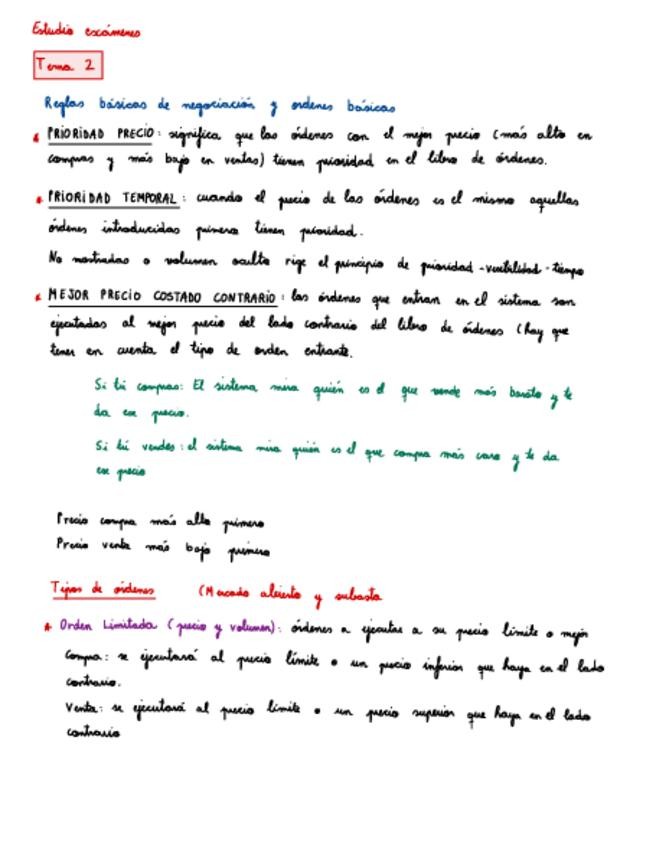 Estudio exámenes
Tema 2
Reglas básicas de negociación y ordenes básicas
PRIORIDAD PRECIO: significa que las órdenes con el mejor precio (más alto en
compras y más bajo en ventas) tienen prioridad en el libro de órdenes.
PRIORIDAD TEMPORAL: cuando el precio de las órdenes es el mismo aquellas
órdenes introducidas primero tienen prioridad.
No mostradas o volumen oculto rige el principio de prioridad - - tiempo
MEJOR PRECIO COSTADO CONTRARIO: las órdenes que entran en el sistema son
ejecutadas al mejor precio del lado contrario del libro de órdenes (hay que
tener en cuenta el tipo de orden entrante.
Si tú compras: El sistema mira quién es el que vende más barato y te
da ese precio.
Si tú vendes: el sistema mira quién es el que compra más caro y te da
ese precio
Precio compra más alto primero
Precio venta más bajo primero
Tipos de órdenes (Mercado abierto y subasta
Orden Limitada (precio y volumen): órdenes a ejecutar a su precio límite o mejor
Compra: se ejecutará al precio límite o un precio inferior que haya en el lado
contrario.
Venta: se ejecutará al precio límite o un precio superior que haya en el lado
contrario